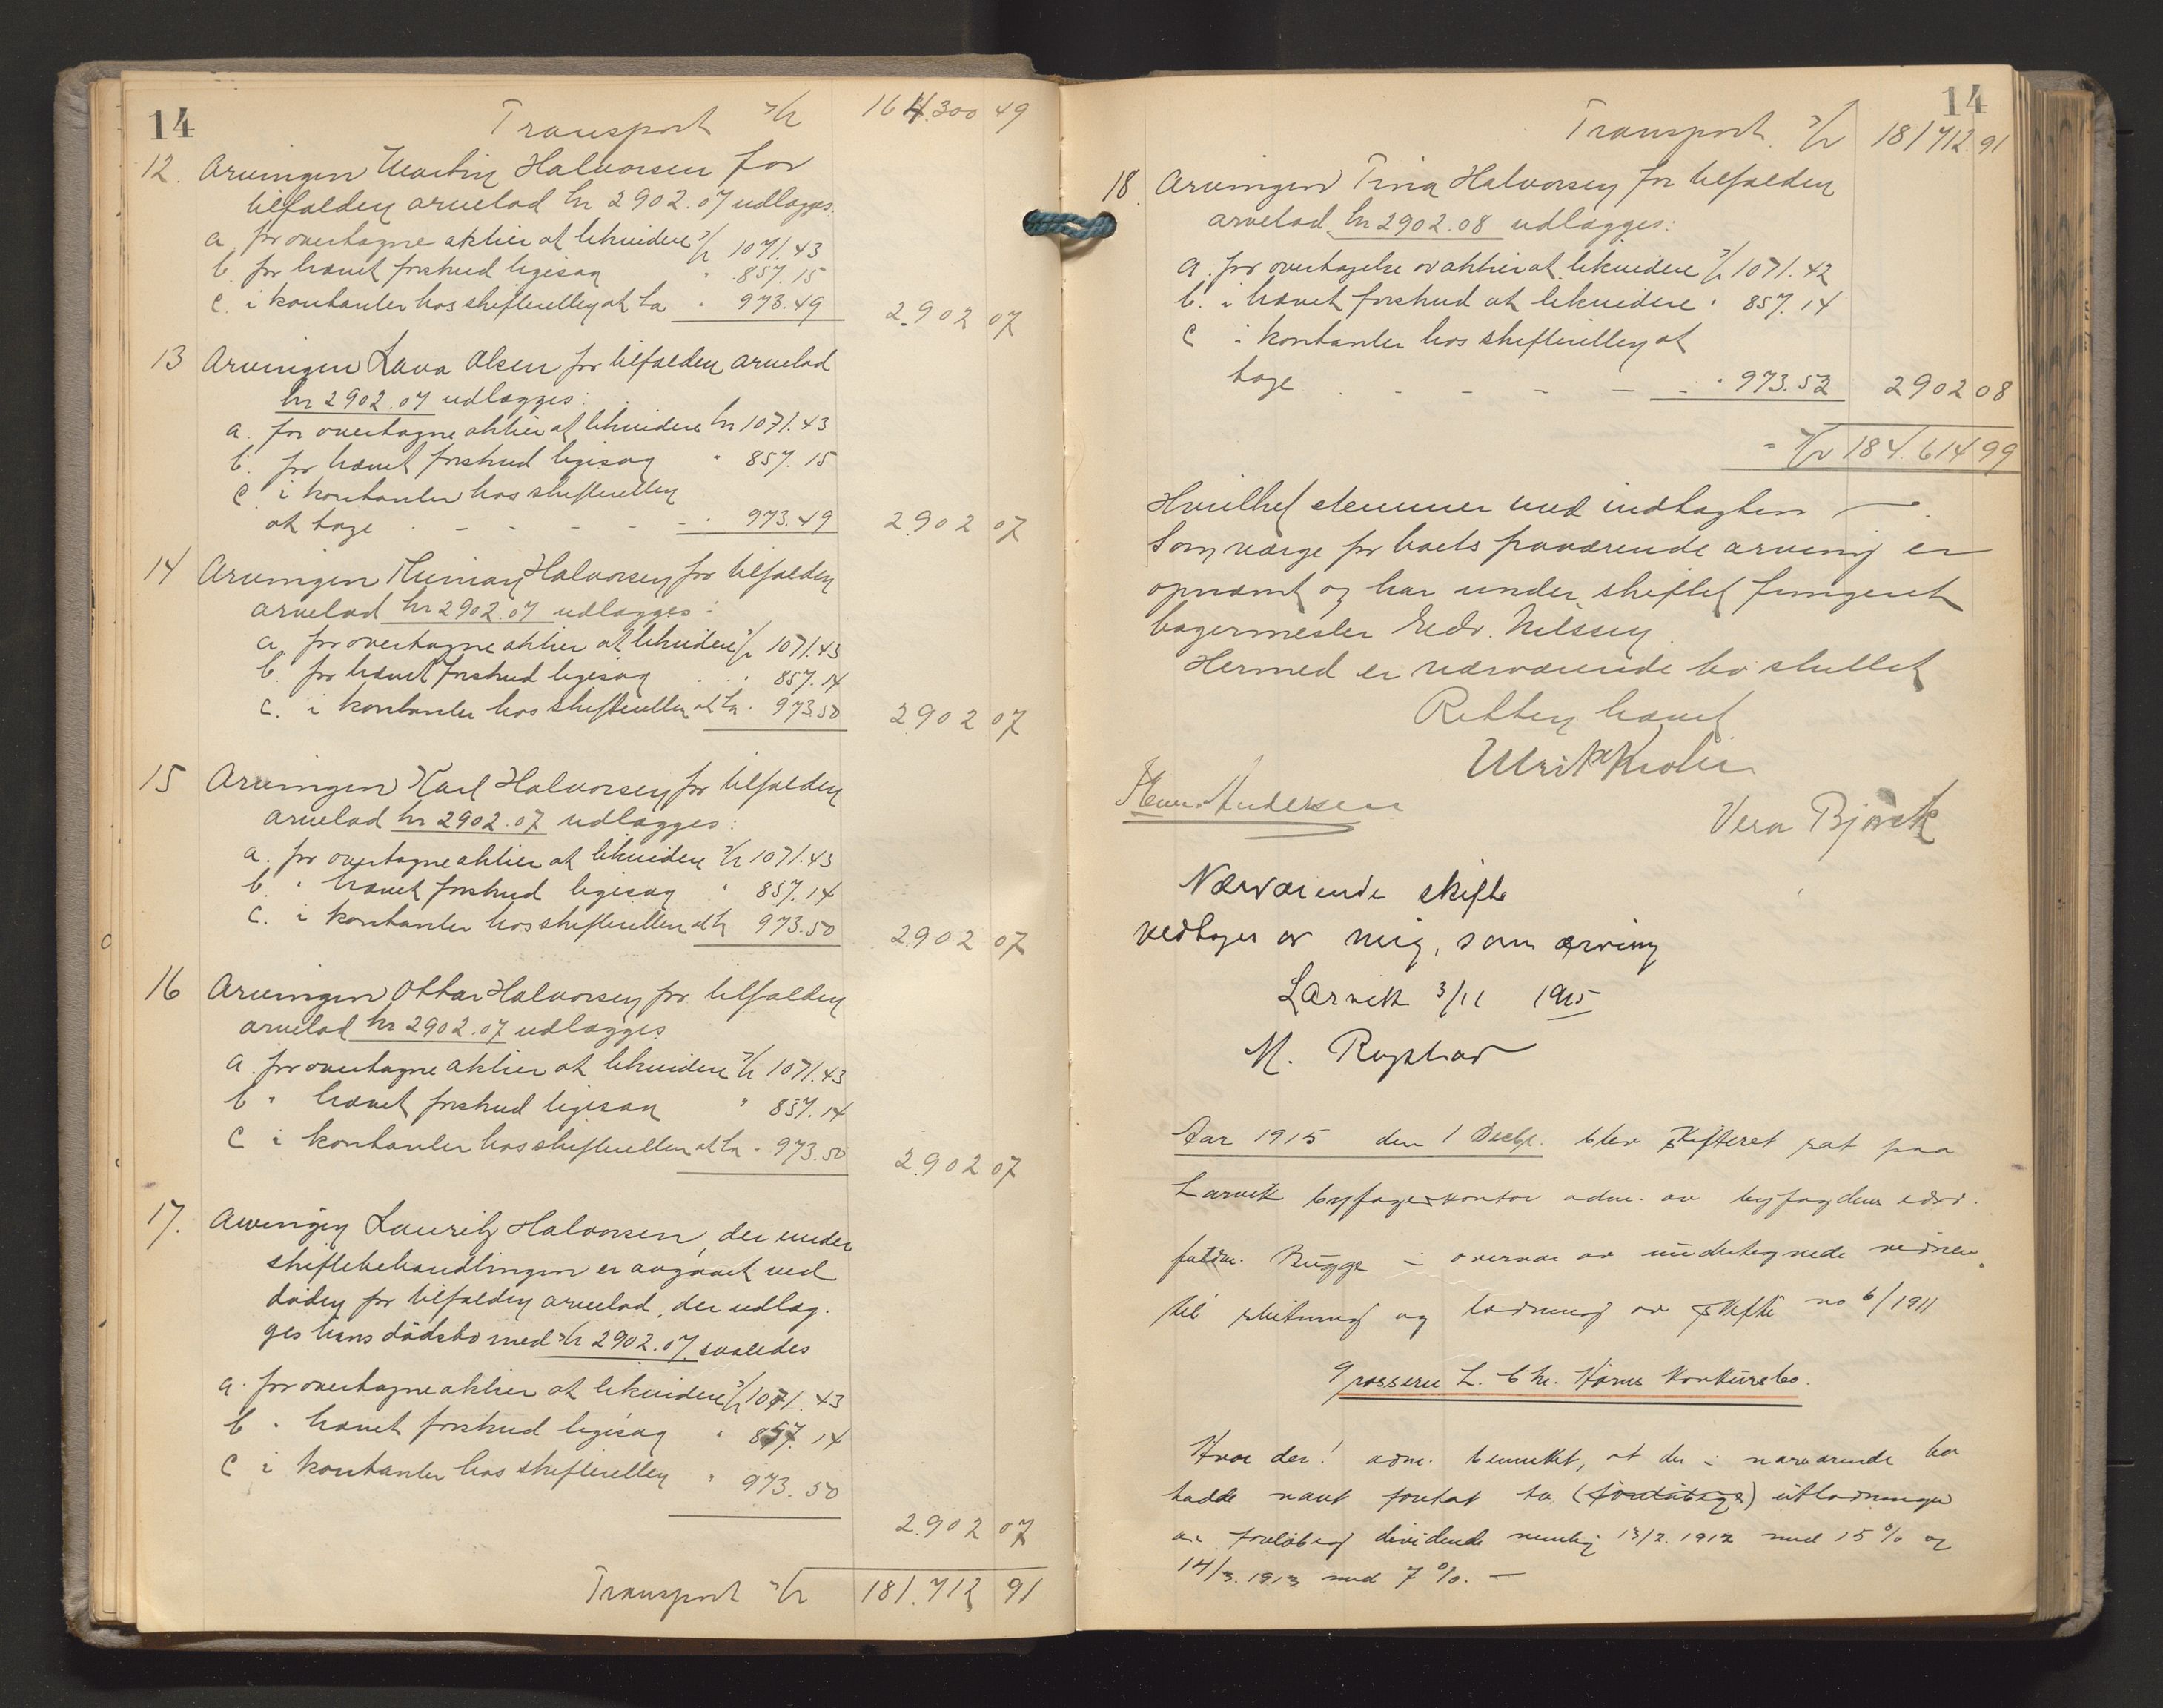 14
Transport Kr 164.300 49
12. Arvingen Martin Halvorsen for
tilfalden arvelod kr 2902.07 udlægges:
a. for overtagne aktier at likvidere Kr 1071.43
b. for hævet forskud ligesaa " 857.15
c. i kontanter hos skifteretten at ta " 973.49 2.902 07
13 Arvingen Lava Olsen for tilfalden arvelod
kr 2902.07 udlægges:
a. for overtagne aktier at likvidere kr 1071.43
b. for hævet forskud ligesaa " 857.15
c. i kontanter hos skifteretten
at tage - - - - - " 973.49 2.902 07
14 Arvingen Halvorsen for tilfalden
arvelod kr 2902.07 udlægges:
a. for overtagne aktier at likvidere Kr 1071.43
b. for hævet forskud ligesaa " 857.14
c. i kontanter hos skifteretten at ta " 973.50 2.902 07
15 Arvingen Karl Halvorsen for tilfalden
arvelod kr 2902.07 udlægges:
a. for overtagne aktier at likvidere Kr 1071.43
b. " hævet forskud ligesaa " 857.14
c. i kontanter hos skifteretten at ta 973.50 2.902 07
16 Arvingen Ottar Halvorsen for tilfalden
arvelod kr 2902.07 udlægges
a. for overtagne aktier at likvidere Kr 1071.43
b " hævet forskud ligesaa " 857.14
c i kontanter hos skifteretten at ta " 973.50 2.902 07
17. Arvingen Lauritz Halvorsen, der under
skiftebehandlingen er avgaaet ved
døden for tilfalden arvelod, der udlæg-
ges hans dødsbo med Kr 2902.07 saaledes
a. for overtagne aktier at likvidere Kr 1071.43
b " hævet forskud ligesaa " 857.14
c i kontanter hos skifteretten " 973.50
2.902 07
Transport Kr 181.712 91
14
Transport Kr 181712.91
18. Arvingen Tina Halvorsen for tilfalden
arvelod kr 2902.08 udlægges:
a. for overtagelse av aktier at likvidere Kr 1071.42
b. i hævet forskud at likvidere " 857.14
c i kontanter hos skifteretten at
tage - - - - - " 973.52 2902 08
= Kr 184.614 99
Hvilket stemmer med indtægten
Som værge for boets fraværende arving er
opnævnt og har under skiftet fungeret
bagermester Edv. Nilssen.
Hermed er nærværende bo sluttet
Retten hævet
Ulrik Krohn
Andersen
Vera Bjørck
Nærværende skifte
vedtages av mig, som arving
Larvik 3/11 1915
M. Rogstad
Aar 1915 den 1 Decbr. blev skifteret sat paa
Larvik byfogedkontor adm. av byfogdens edsv.
fuldm. Bugge i overvær av undertegnede vidner
til slutning og lodning av skifte no 6/1911
grosserer L. Chr. Holms konkursbo.
Hvor da! adm. bemerket, at der i nærværende bo
hadde vært foretat to (foreløbige) utlodninger
av foreløbig dividende nemlig 13/2. 1912 med 15% og
14/3. 1913 med 7%. -